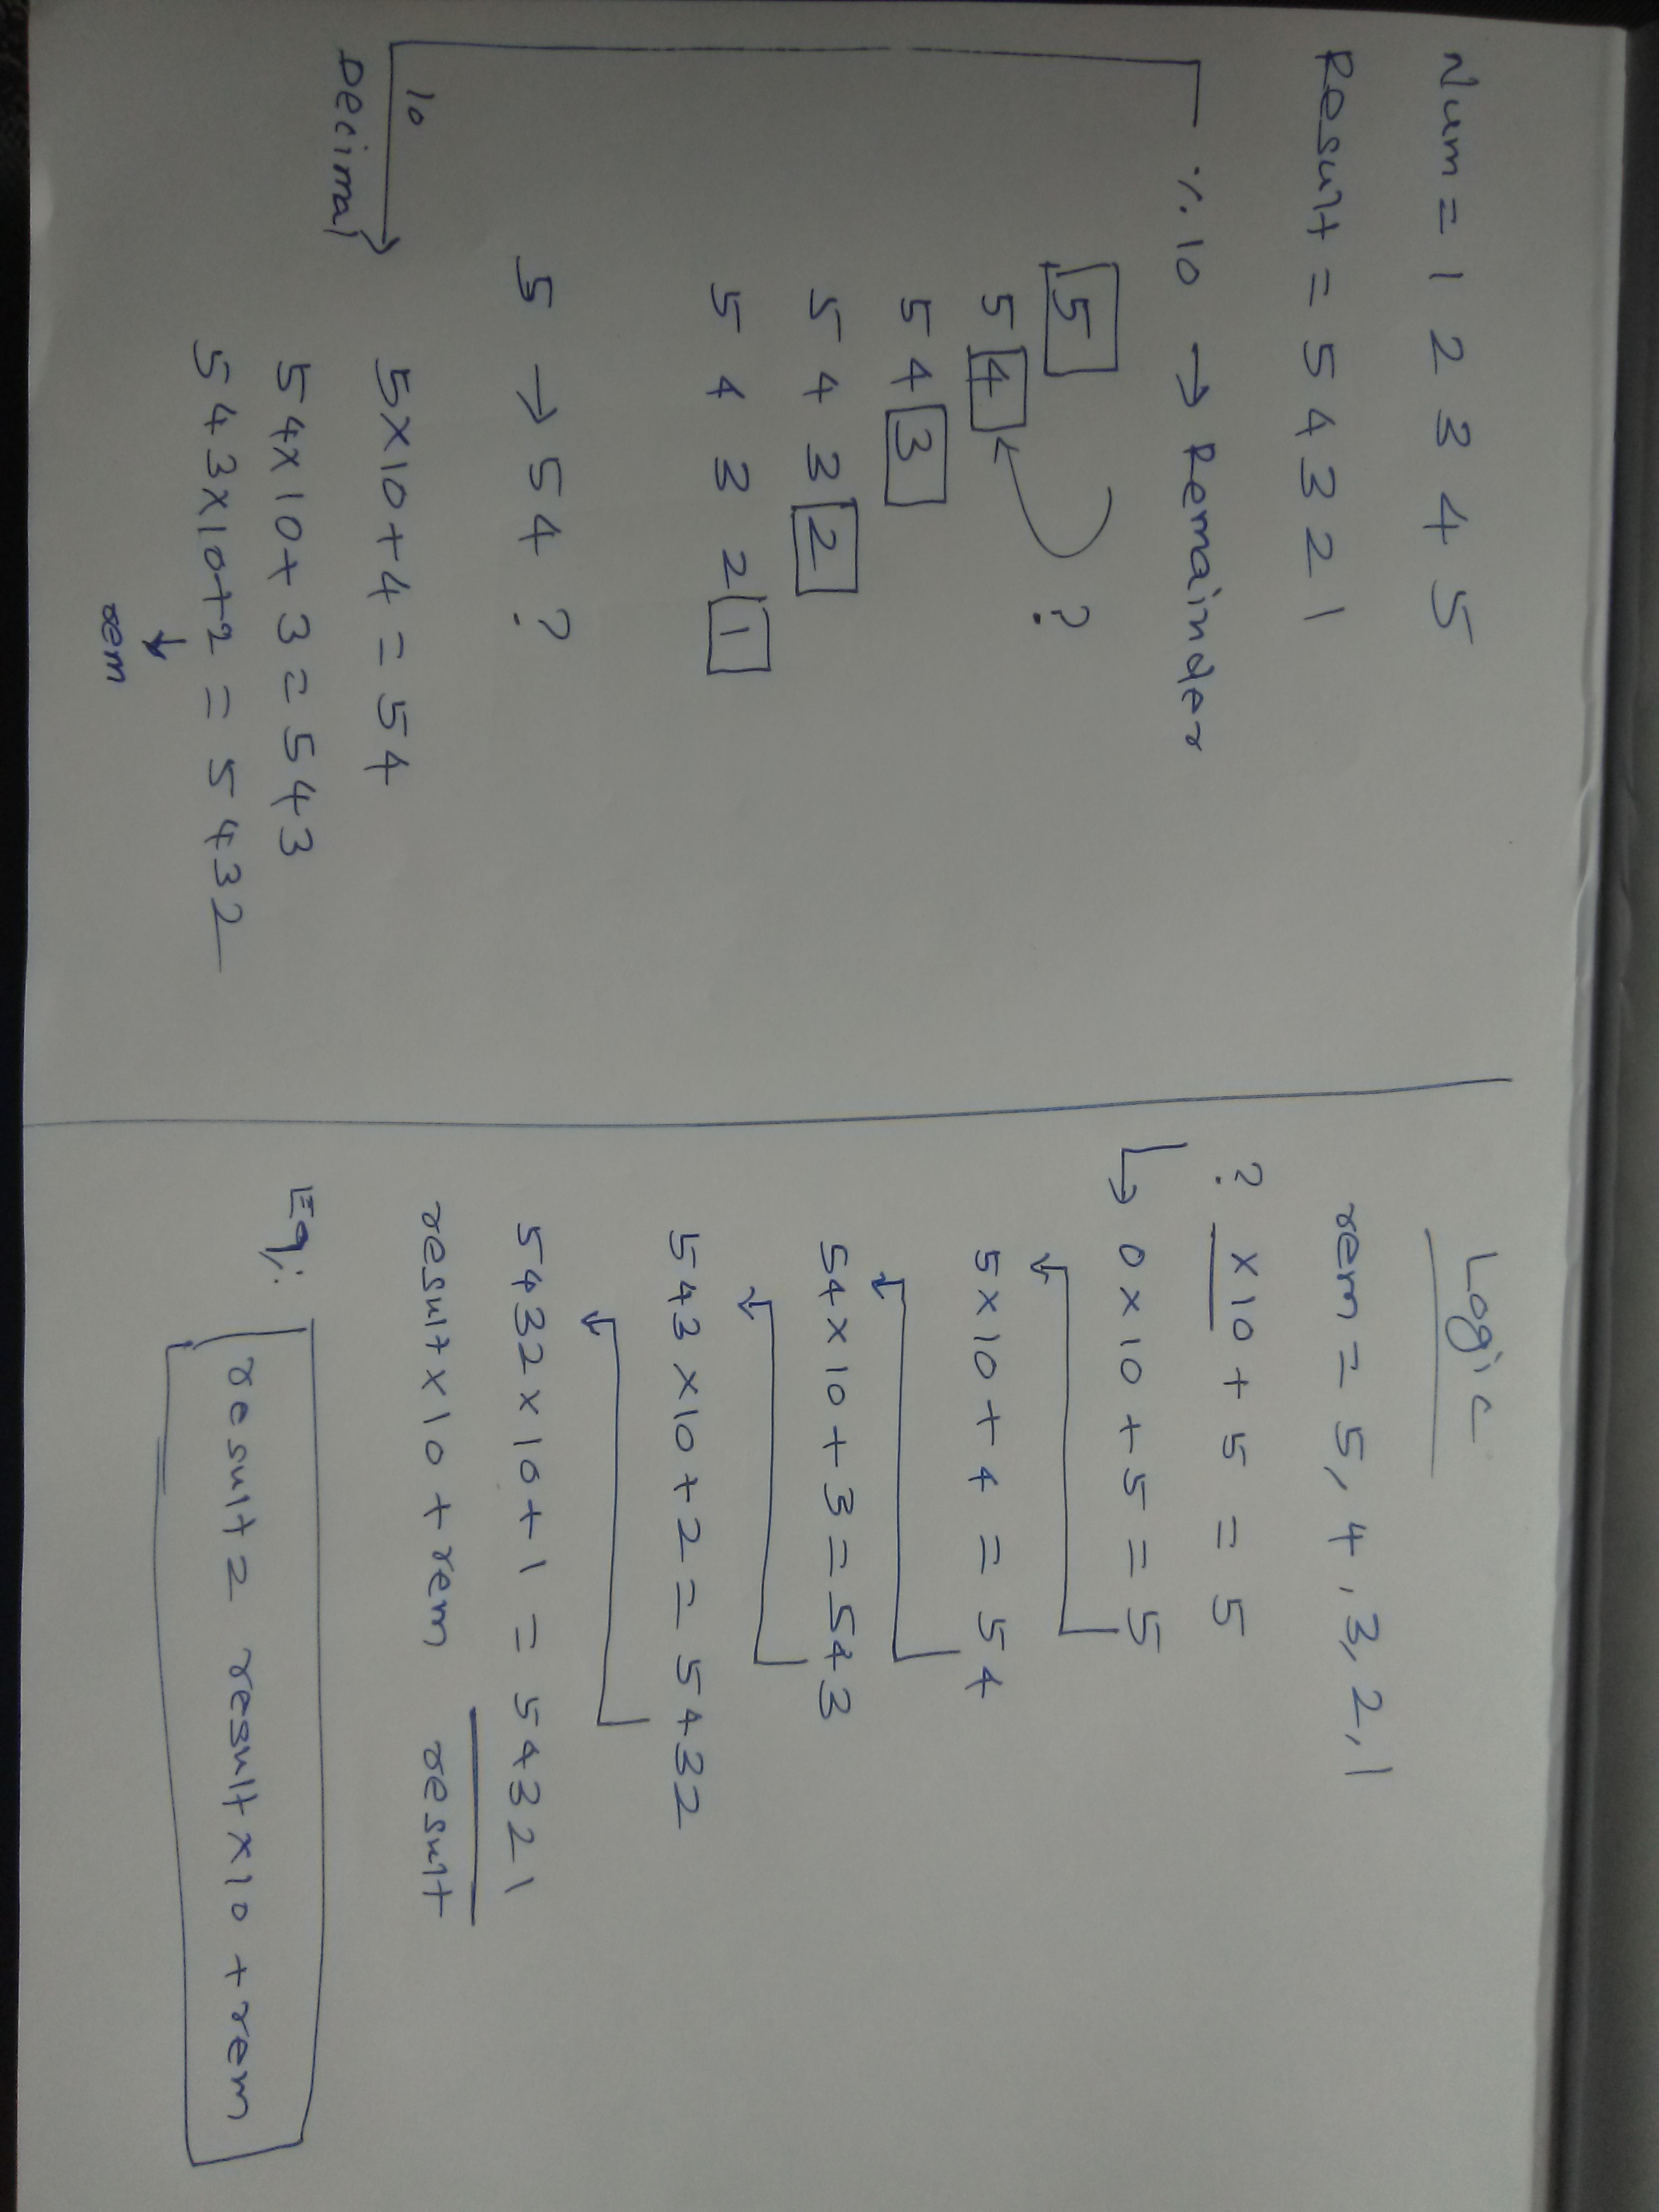 Num = 1 2 3 4 5
Result = 5 4 3 2 1
% 10 → Remainder
5
?
5 4
5 4 3
5 4 3 2
5 4 3 2 1
5 → 54 ?
10
Decimal
5×10+4 = 54
54×10+3 = 543
543×10+2 = 5432
↓
rem
Logic
rem = 5, 4, 3, 2, 1
? ×10 + 5 = 5
0×10+5 = 5
5×10+4 = 54
54×10+3 = 543
543×10+2 = 5432
5432×10+1 = 54321
result×10 + rem result
Eq:
result = result×10 + rem